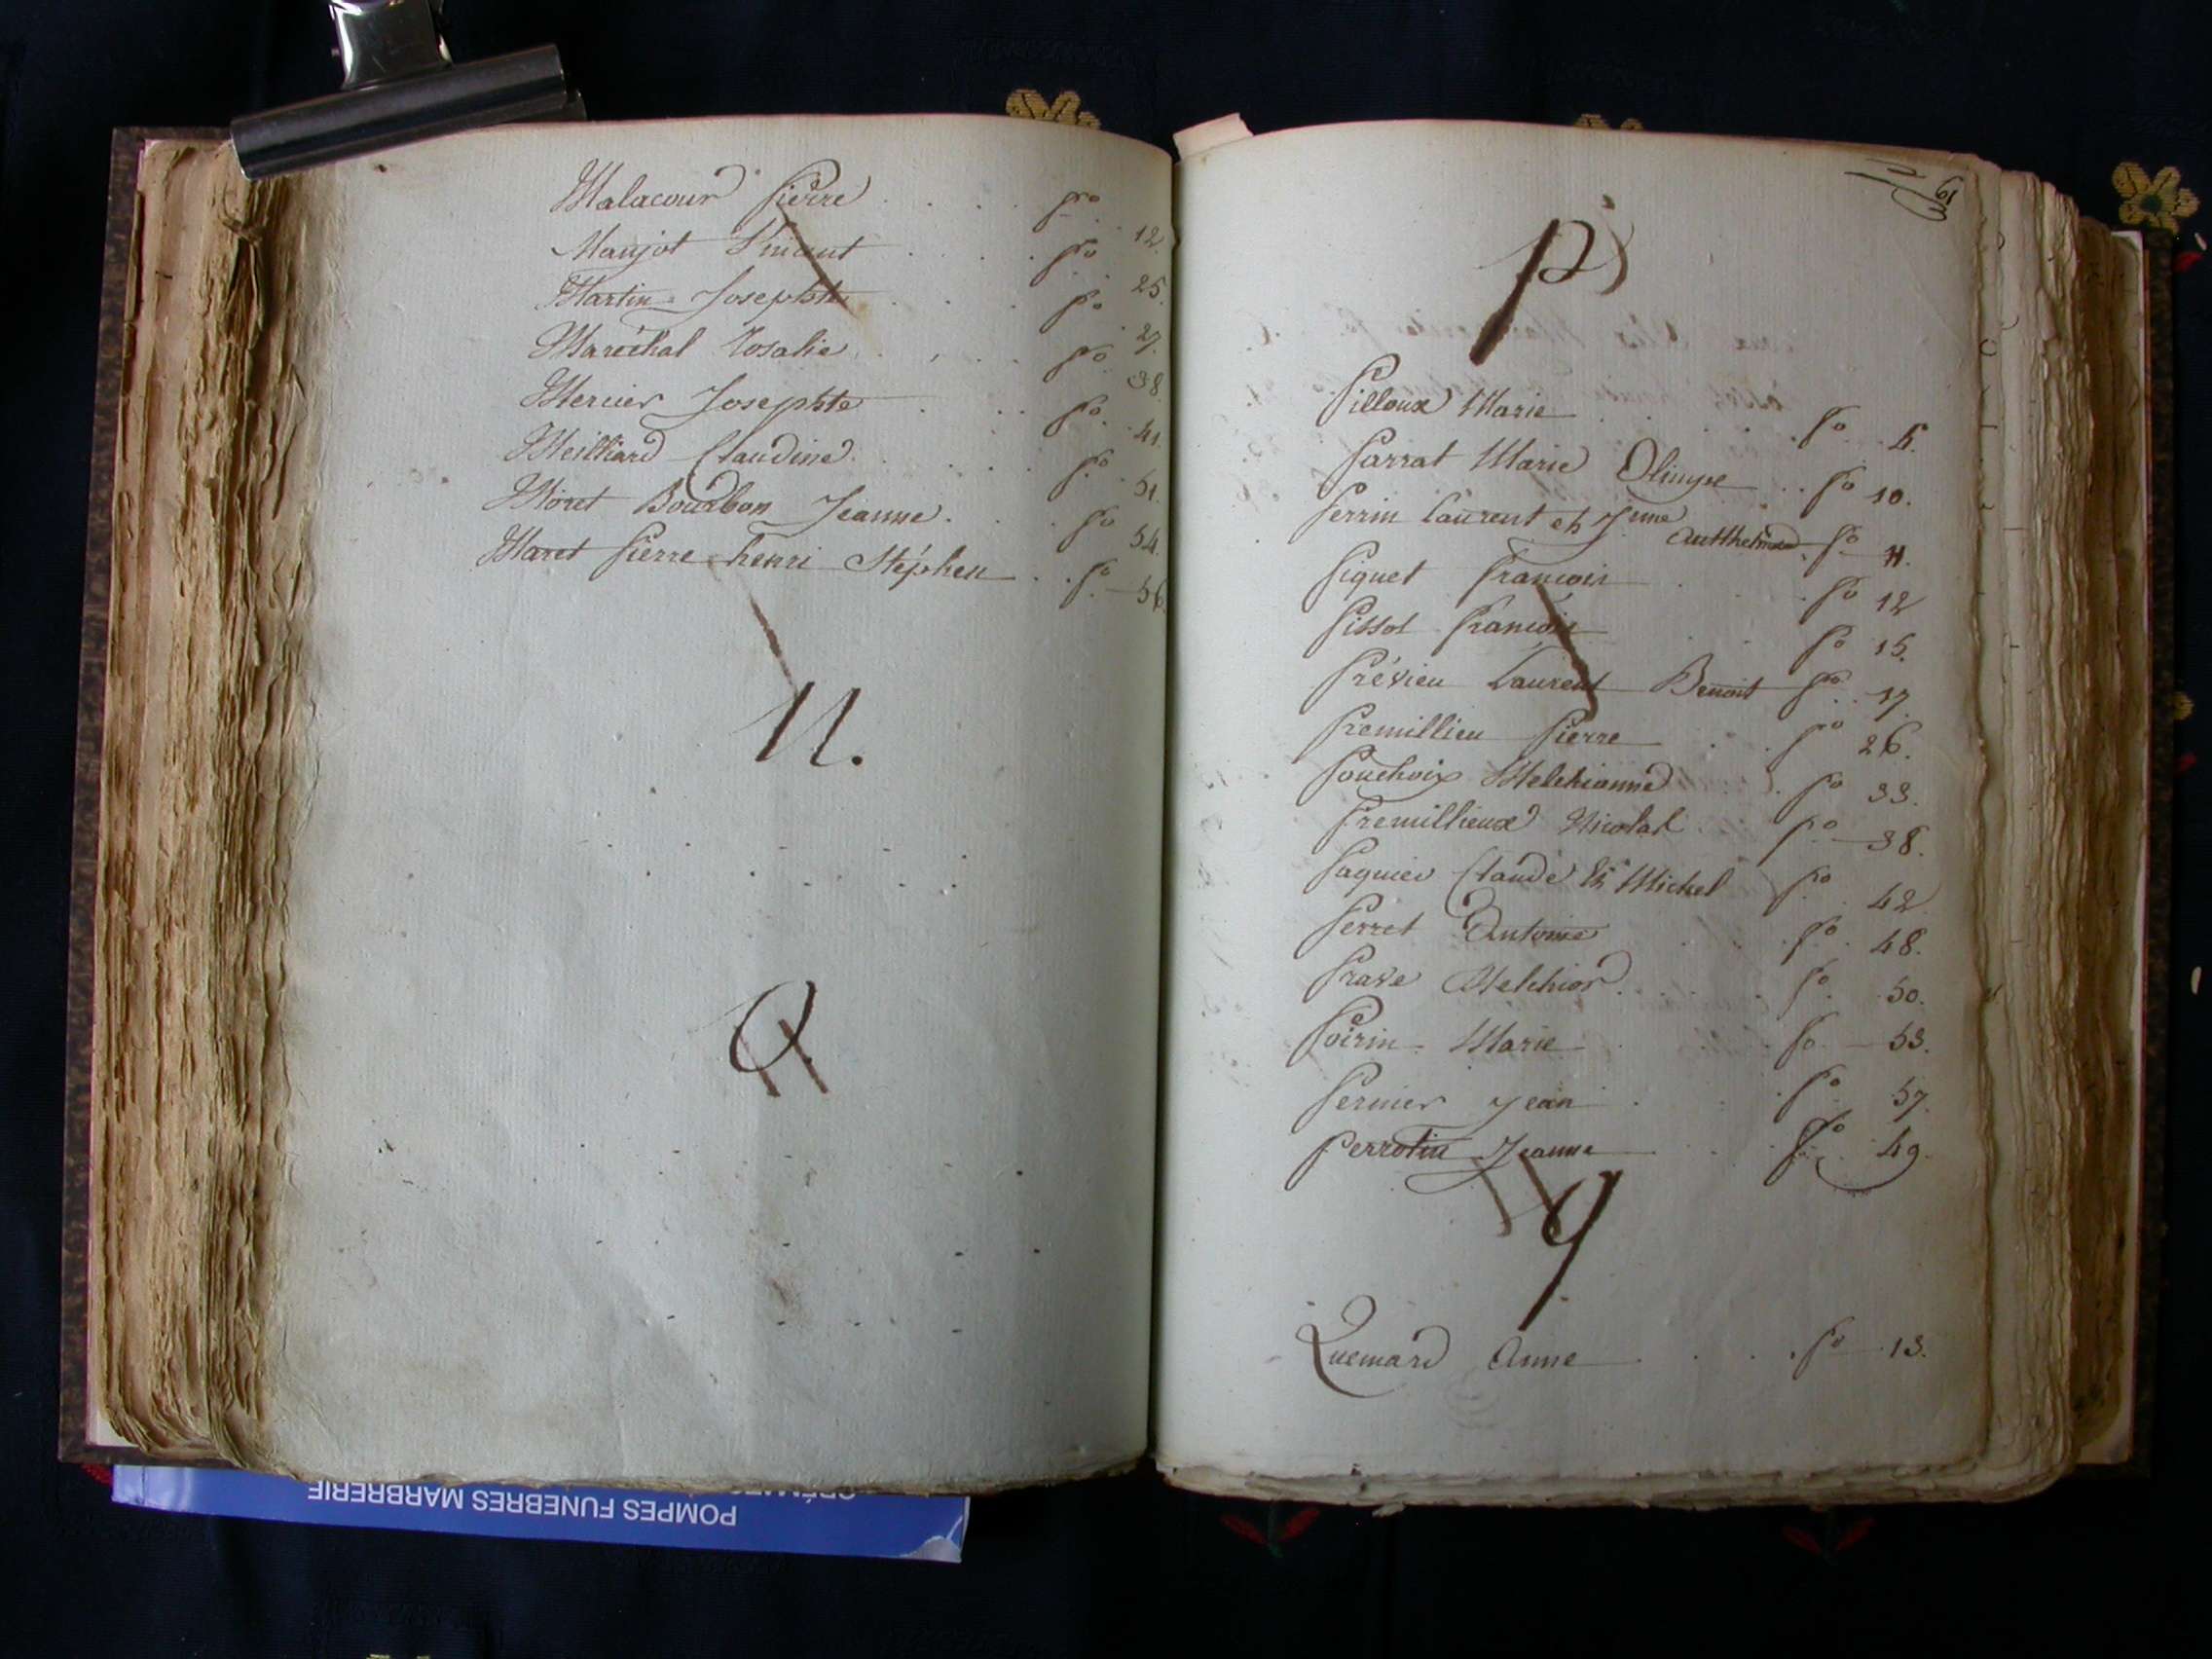 Malacour Pierre . . . . fo . 12.
Maujot Vincent . . . . fo . 25.
Martin Josephte . . . fo . 27.
Maréchal Rosalie . . . . fo . 38
Mercier Josephte . . . fo . 41.
Meilliard Claudine . . . . fo . 51.
Moret Bourbon Jeanne . . . fo 54.
Maret Pierre henri Stéphen . . fo 56.
N.
O.
61
P
Pilloux Marie . . . . fo . 5.
Parrat Marie Olimpe . . fo 10.
Perrin Laurent et Jnne
Anthelmed . fo 11.
Piquet françois . . . fo 12
Pissot françois . . fo 15.
Prévieu Laurent Benoit fo . . 17.
Premillieu Pierre . . fo 26.
Pouchoix Melchionne . fo 33.
Premillieux Nicolas . fo 38.
Paquier Claude et Michel fo . 42
Perret Antoine . . fo . 48.
Prave Melchior . . fo . 50.
Poirin Marie . . fo . 53.
Pernier Jean . . . fo . 57.
Perrotin Jeanne . . . fo . 49.
q
Quemard Anne . . . fo 13.
POMPES FUNEBRES MARBRERIE